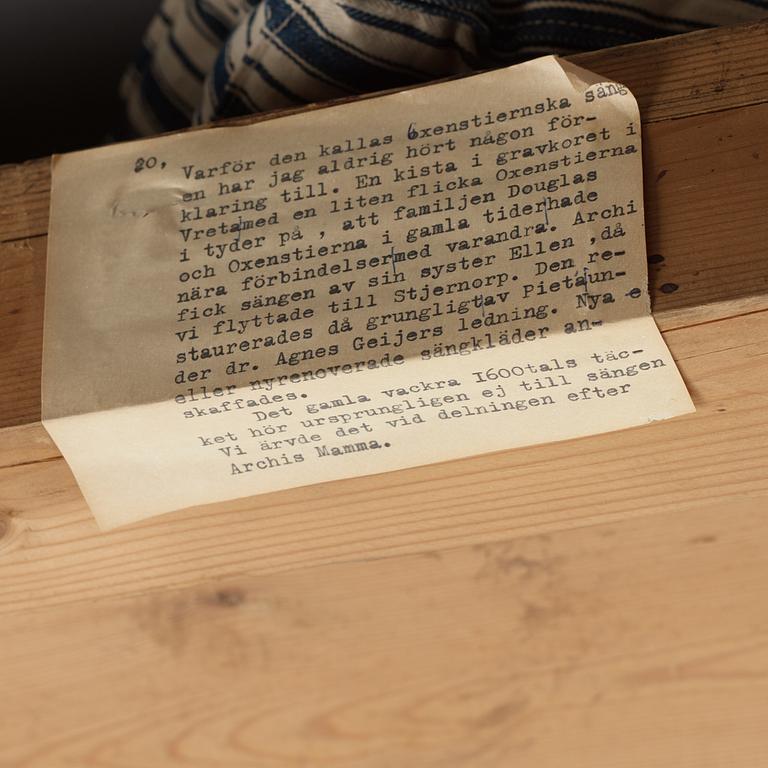 20, Varför den kallas Oxenstiernska säng
en har jag aldrig hört någon för-
klaring till. En kista i gravkoret i
Vreta med en liten flicka Oxenstierna
i tyder på , att familjen Douglas
och Oxenstierna i gamla tider hade
nära förbindelser med varandra. Archi
fick sängen av sin syster Ellen ,då
vi flyttade till Stjernorp. Den re-
staurerades då grungligt av Pietaun-
der dr. Agnes Geijers ledning. Nya e
eller nyrenoverade sängkläder an-
skaffades.
Det gamla vackra I600tals täc-
ket hör ursprungligen ej till sängen
Vi ärvde det vid delningen efter
Archis Mamma.